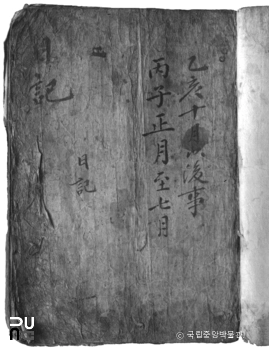 乙亥十月以後事
丙子正月至七月
日記
日記
© 국립중앙박물관